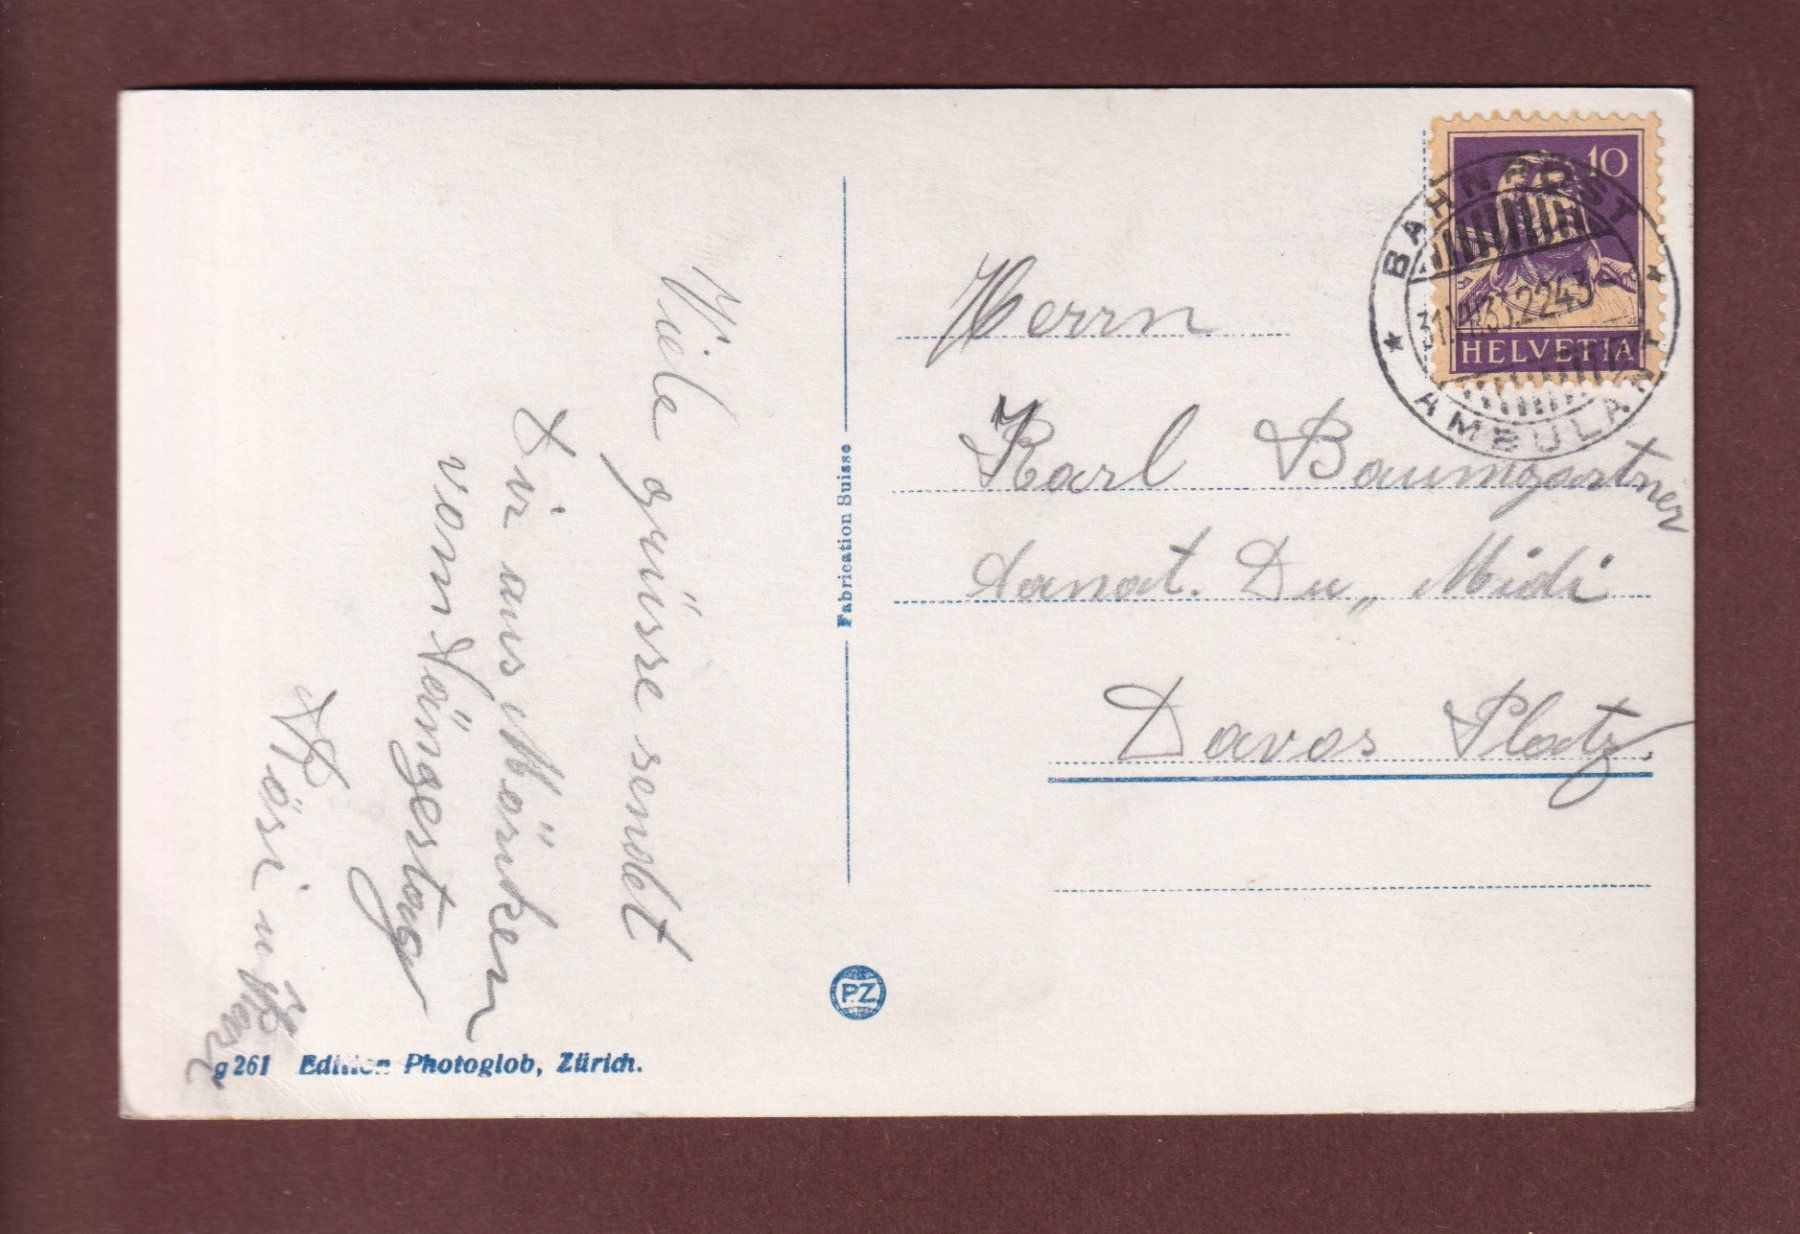 Viele grüsse sendet
Dir aus Möriken
vom
Rösi u.
g 261 Edition Photoglob, Zürich.
Fabrication Suisse
PZ
10
HELVETIA
BAHNPOST
AMBULANT
Herrn
Karl Baumgartner
Sanat. Du „ Midi
Davos Platz.